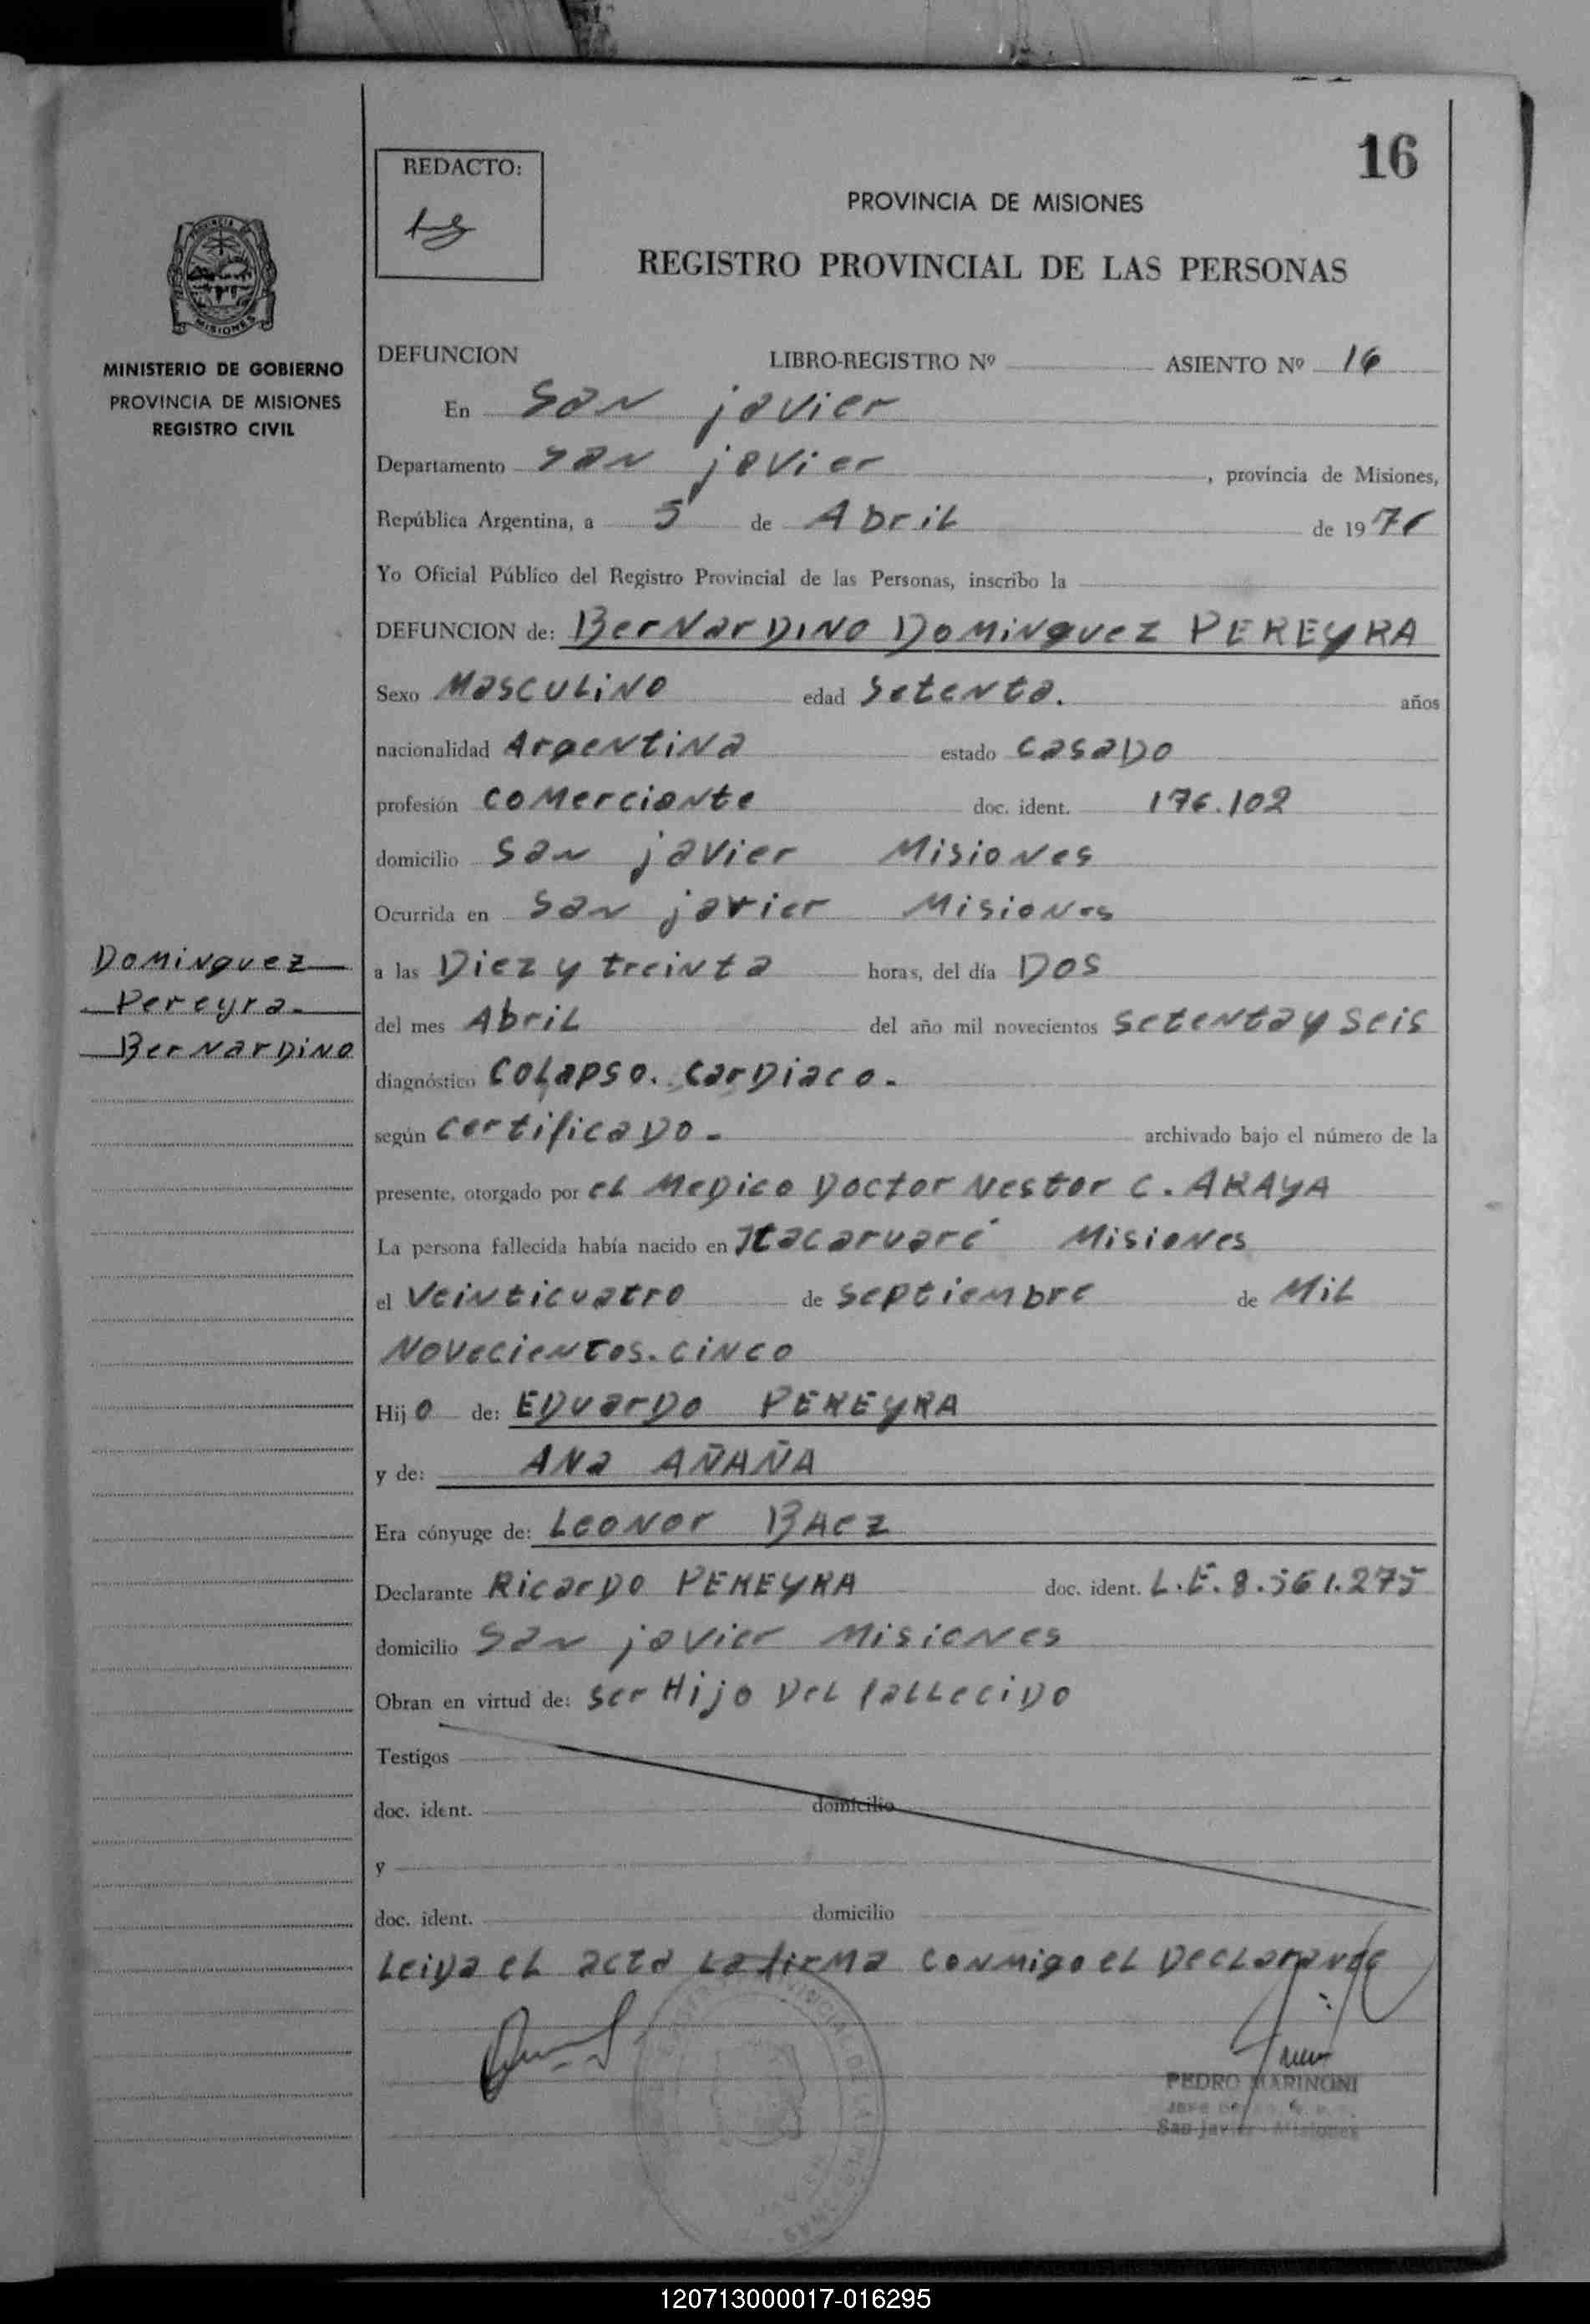 16
REDACTO:
PROVINCIA DE MISIONES
REGISTRO PROVINCIAL DE LAS PERSONAS
MISIONES
MINISTERIO DE GOBIERNO
PROVINCIA DE MISIONES
REGISTRO CIVIL
DEFUNCION LIBRO-REGISTRO Nº ASIENTO Nº 16
En San javier
Departamento San javier, provincia de Misiones,
República Argentina, a 5 de Abril de 1976
Yo Oficial Público del Registro Provincial de las Personas, inscribo la
DEFUNCION de: Bernardino Dominguez PEREYRA
Sexo Masculino edad Setenta. años
nacionalidad Argentina estado casado
profesión comerciante doc. ident. 176.102
domicilio San javier Misiones
Ocurrida en San javier Misiones
Dominguez
Pereyra.
Bernardino
a las Diez y treinta horas, del día Dos
del mes Abril del año mil novecientos setenta y seis
diagnóstico Colapso. Cardiaco.
según certificado - archivado bajo el número de la
presente, otorgado por el Medico Doctor Nestor C. ARAYA
La persona fallecida había nacido en Itacaruaré Misiones
el Veinticuatro de septiembre de Mil
Novecientos. cinco
Hijo de: Eduardo PEREYRA
y de: Ana AÑAÑA
Era cónyuge de: Leonor BAez
Declarante Ricardo PEREYRA doc. ident. L.E. 8.561.275
domicilio San javier Misiones
Obran en virtud de: ser Hijo del fallecido
Testigos
doc. ident. domicilio
y
doc. ident. domicilio
Leida el acta la firma conmigo el Declarante
PEDRO MARINONI
San Javier - Misiones
120713000017-016295